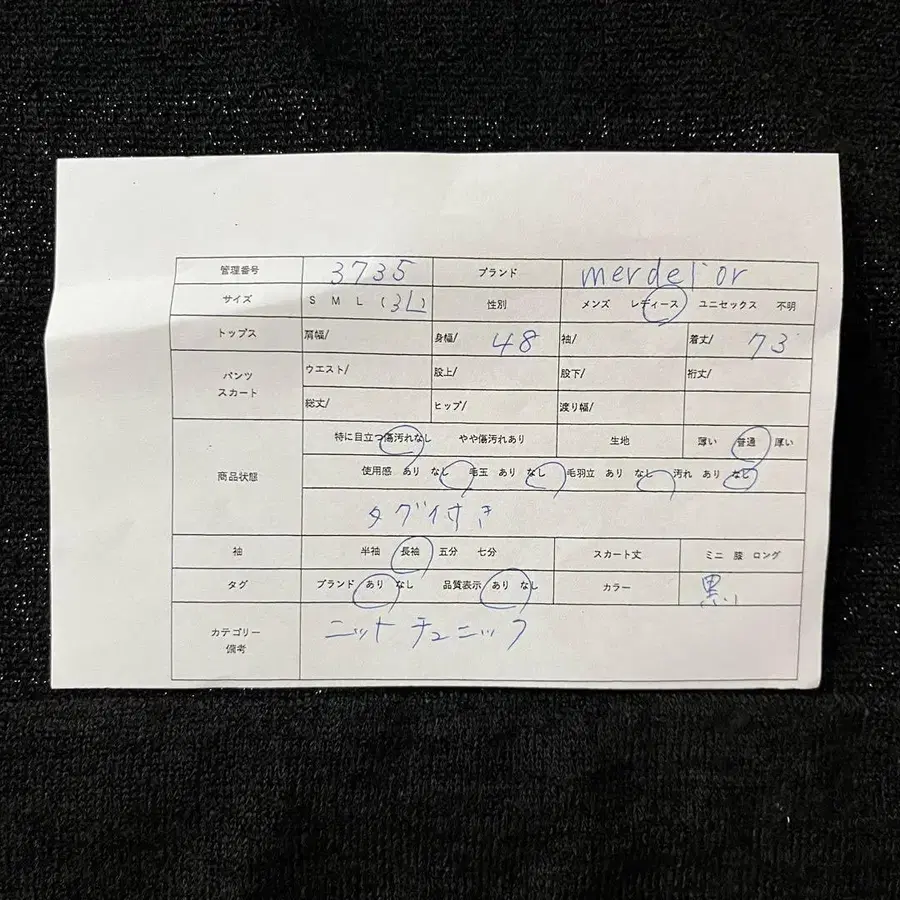 管理番号 3735 ブランド merdel'or
サイズ S M L (3L) 性別 メンズ レディース ユニセックス 不明
トップス 肩幅/ 身幅/ 48 袖/ 着丈/ 73
パンツ スカート ウエスト/ 股上/ 股下/ 裄丈/
総丈/ ヒップ/ 渡り幅/
商品状態 特に目立つ傷汚れなし やや傷汚れあり 生地 薄い 普通 厚い
使用感 あり なし 毛玉 あり なし 毛羽立 あり なし 汚れ あり なし
タグ付き
袖 半袖 長袖 五分 七分 スカート丈 ミニ 膝 ロング
タグ ブランド あり なし 品質表示 あり なし カラー 黒
カテゴリー 備考 ニットチュニック